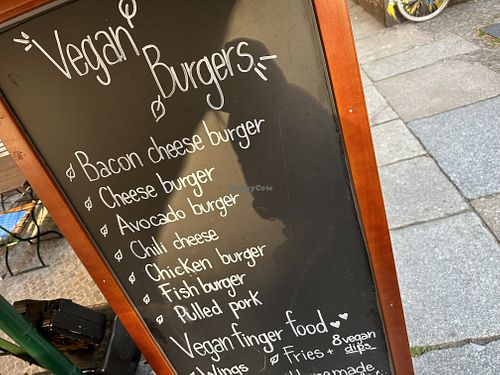 Vegan
Burgers
Bacon cheese burger
Cheese burger
Avocado burger
Chili cheese
Chicken burger
Fish burger
Pulled pork
Vegan finger food
Wings
Fries + 8 vegan
dips
Homemade
HappyCow